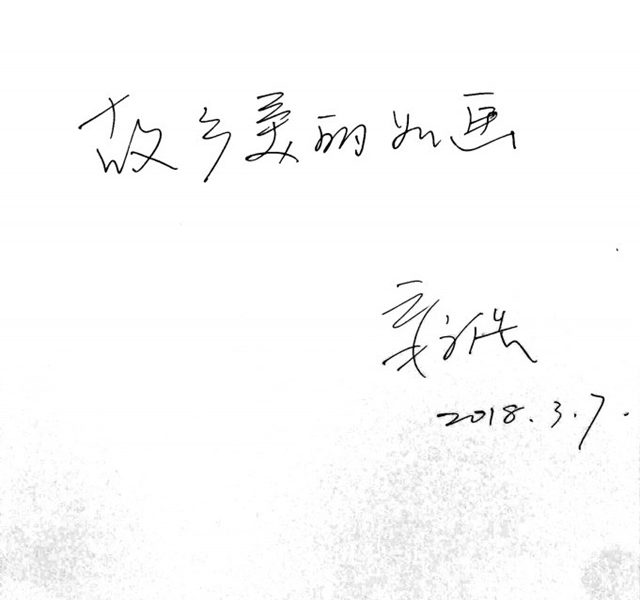 故乡美丽如画
2018.3.7.